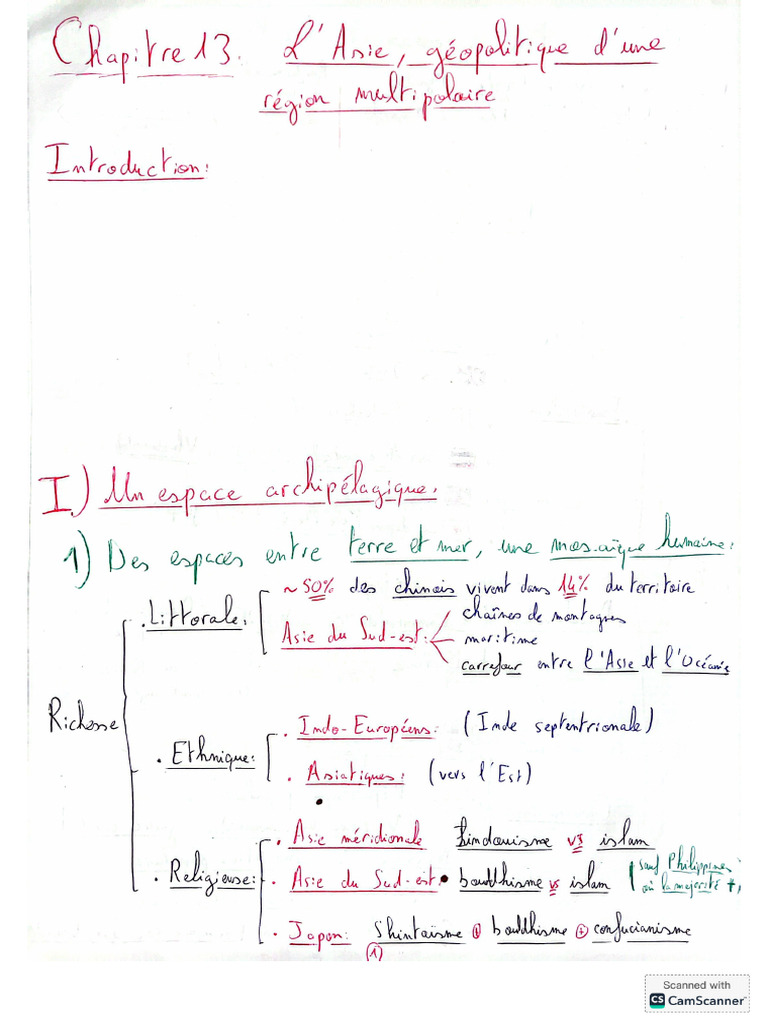 Chapitre 13. L'Asie, géopolitique d'une
région multipolaire
Introduction:
I.) Un espace archipélagique.
1) Des espaces entre terre et mer, une mosaïque humaine:
Richesse
. Littorale:
~ 50% des chinois vivent dans 14% du territoire
Asie du Sud-est:
chaînes de montagnes
maritime
carrefour entre l'Asie et l'Océanie
. Ethnique:
. Indo-Européens: (Inde septentrionale)
. Asiatiques: (vers l'Est)
. Religieuse:
. Asie méridionale hindouisme vs islam
. Asie du Sud-est: bouddhisme vs islam
sauf Philippines
où la majorité
. Japon: Shintaïsme + bouddhisme + confucianisme
(1)
Scanned with
CS CamScanner